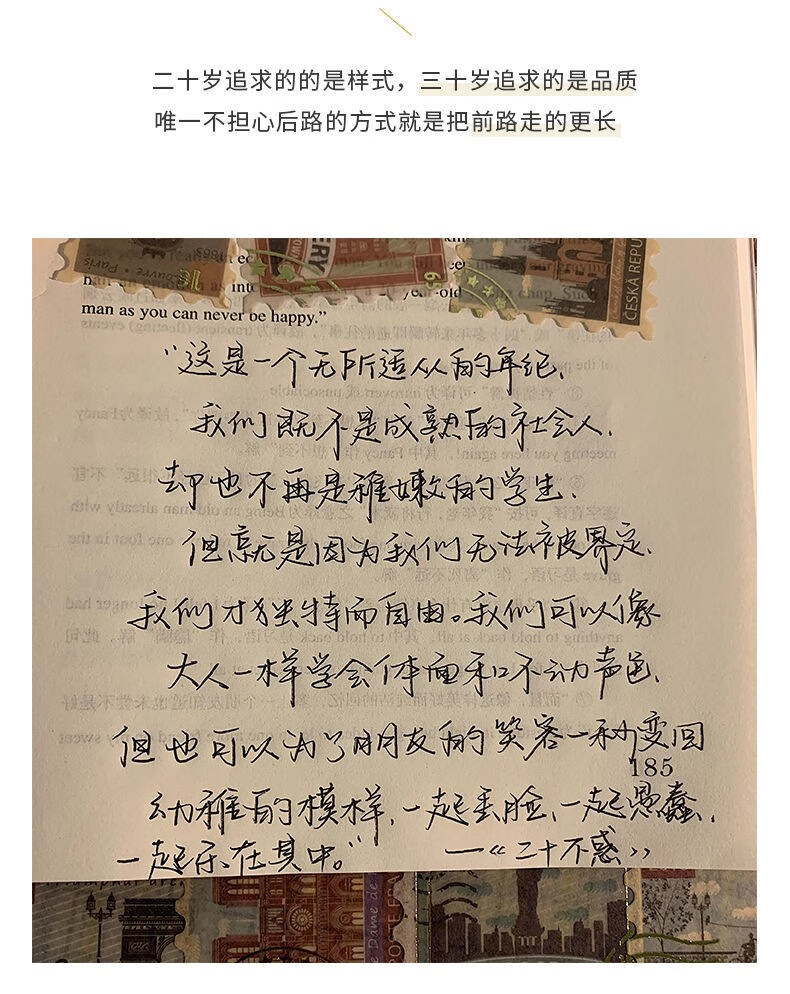 二十岁追求的的是样式，三十岁追求的是品质
唯一不担心后路的方式就是把前路走的更长
ČESKÁ REPU
man as you can never be happy.”
“这是一个无所适从的年纪，
我们既不是成熟的社会人，
却也不再是稚嫩的学生，
但就是因为我们无法被界定，
我们才独特而自由。我们可以像
大人一样学会体面和不动声色，
但也可以为了朋友的笑容一秒变回
185
幼稚的模样，一起丢脸，一起愚蠢，
一起乐在其中。” —《二十不惑》